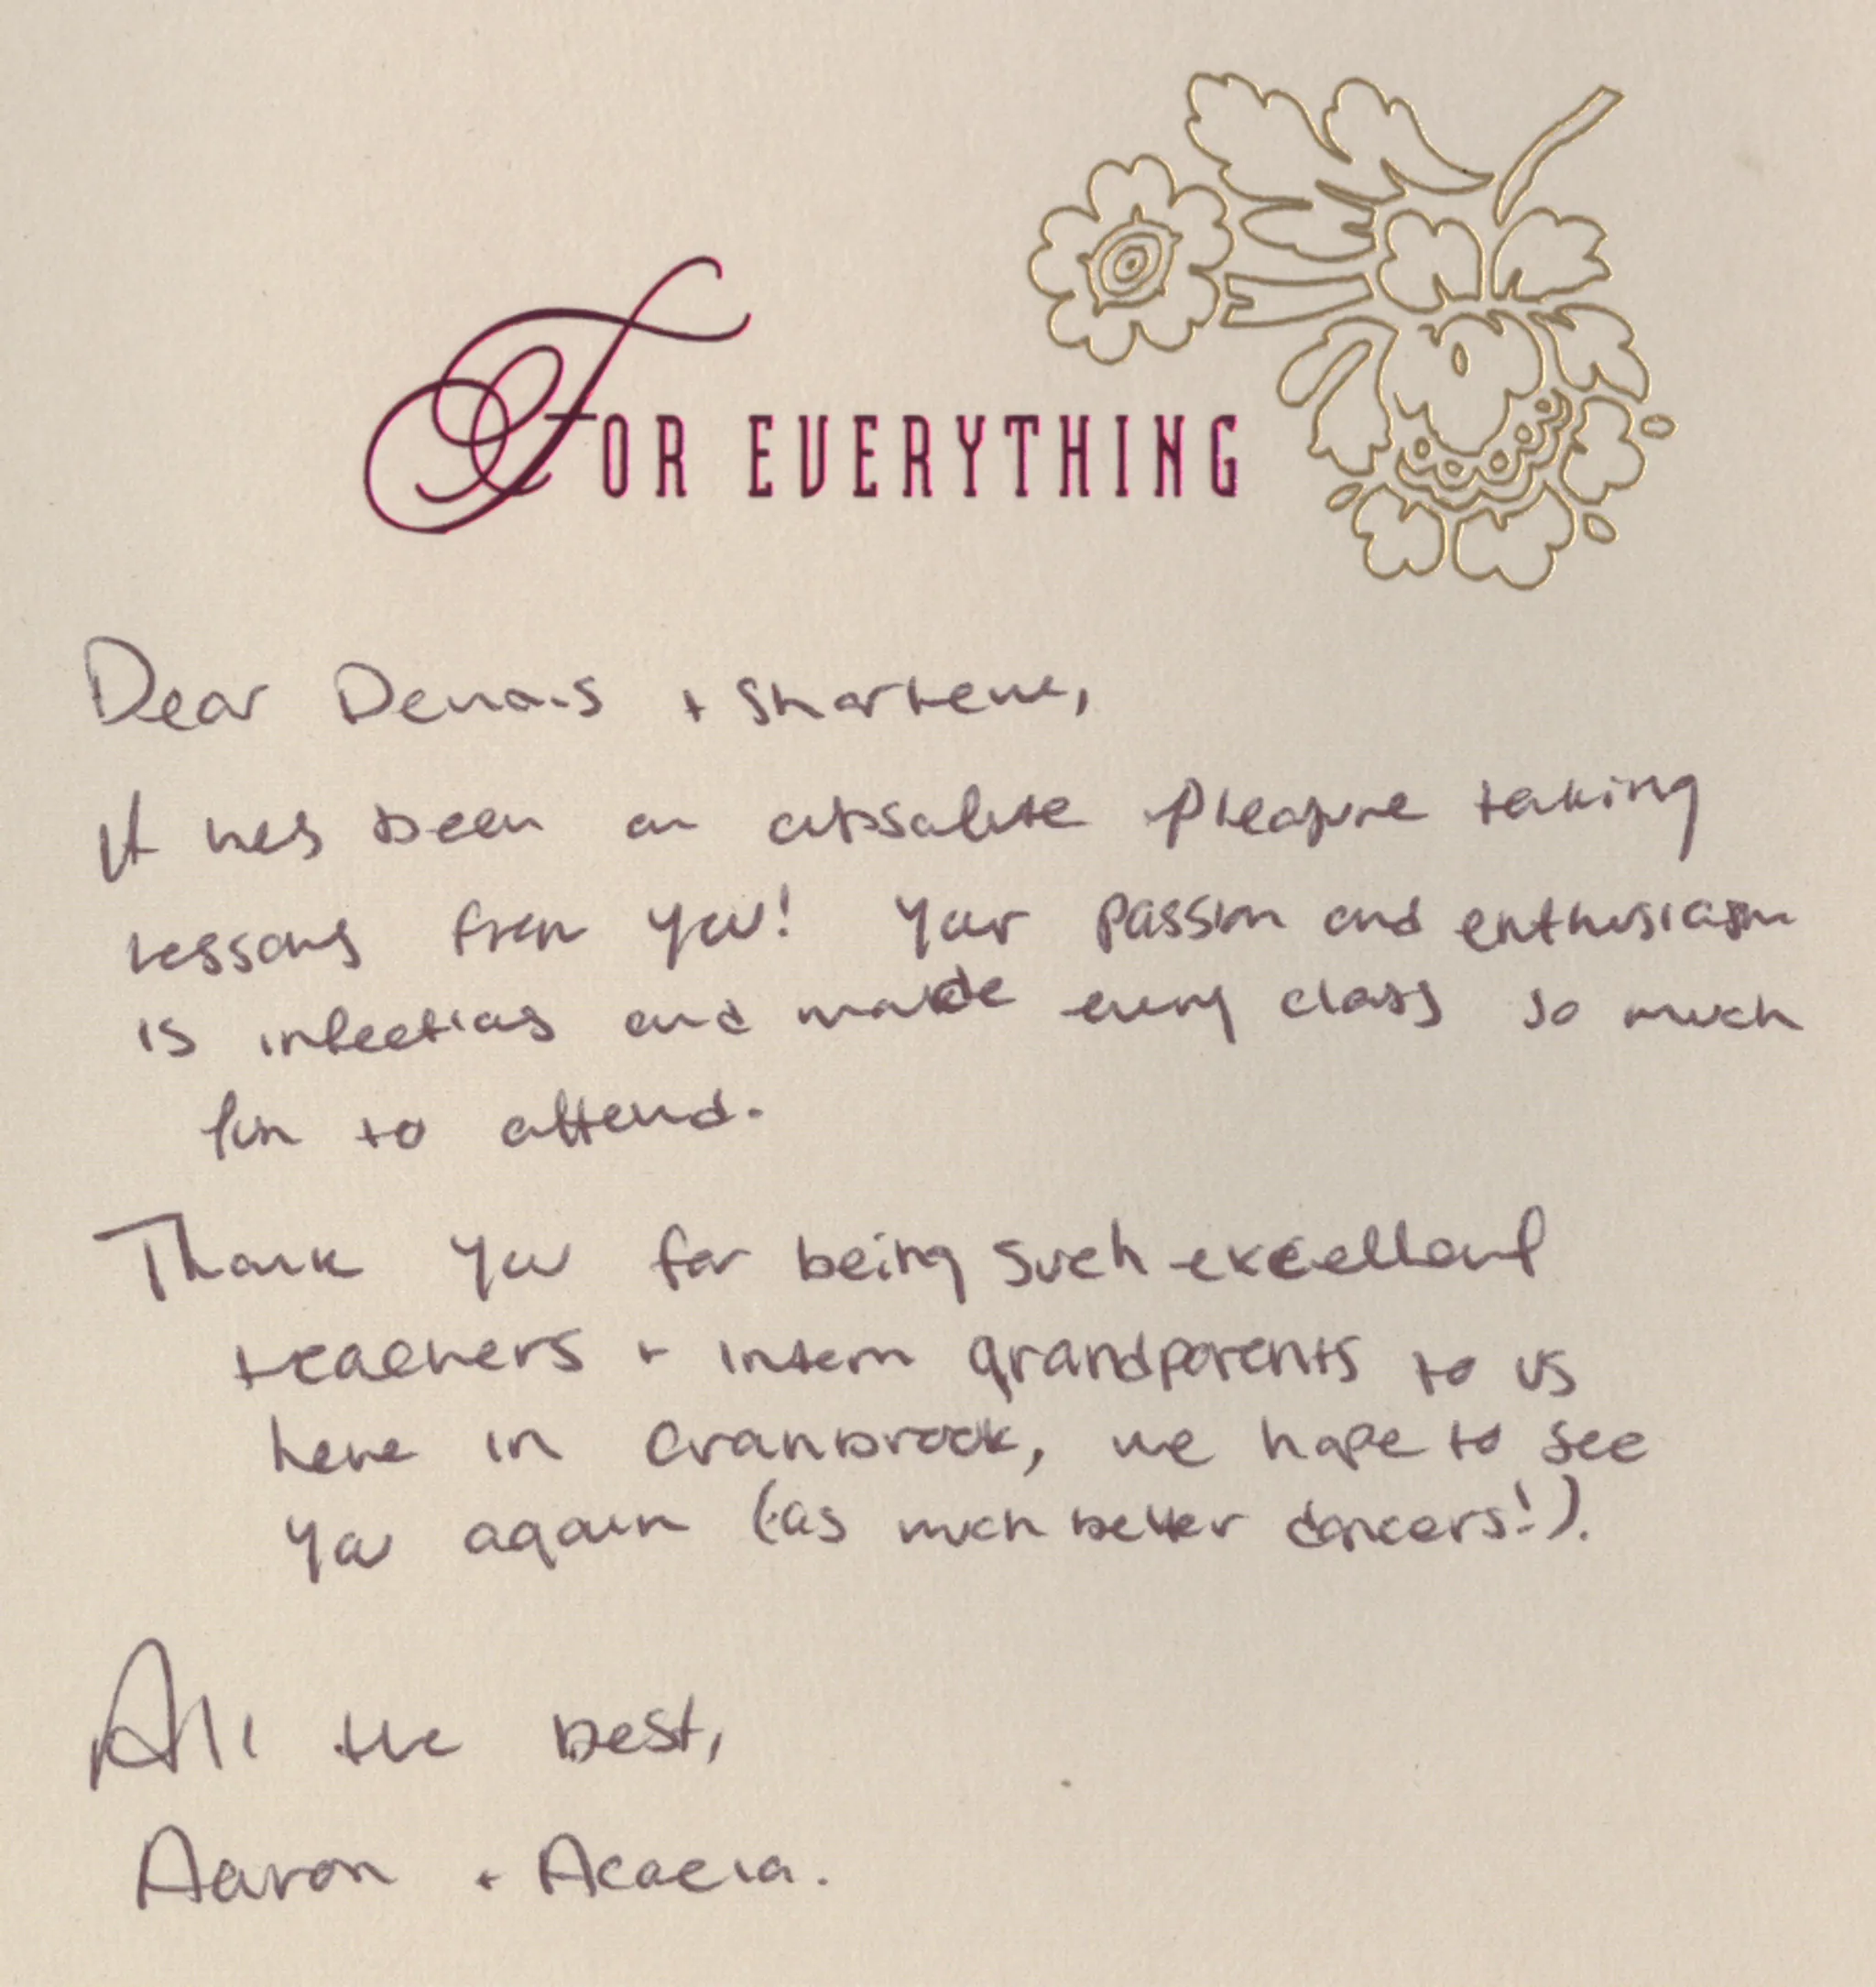 FOR EVERYTHING
Dear Dennis + Sharlene,
It has been an absolute pleasure taking
lessons from you! Your passion and enthusiasm
is infectious and made every class so much
fun to attend.
Thank you for being such excellent
teachers + interm grandparents to us
here in Cranbrook, we hope to see
you again (as much better dancers!).
All the best,
Aaron + Acacia.